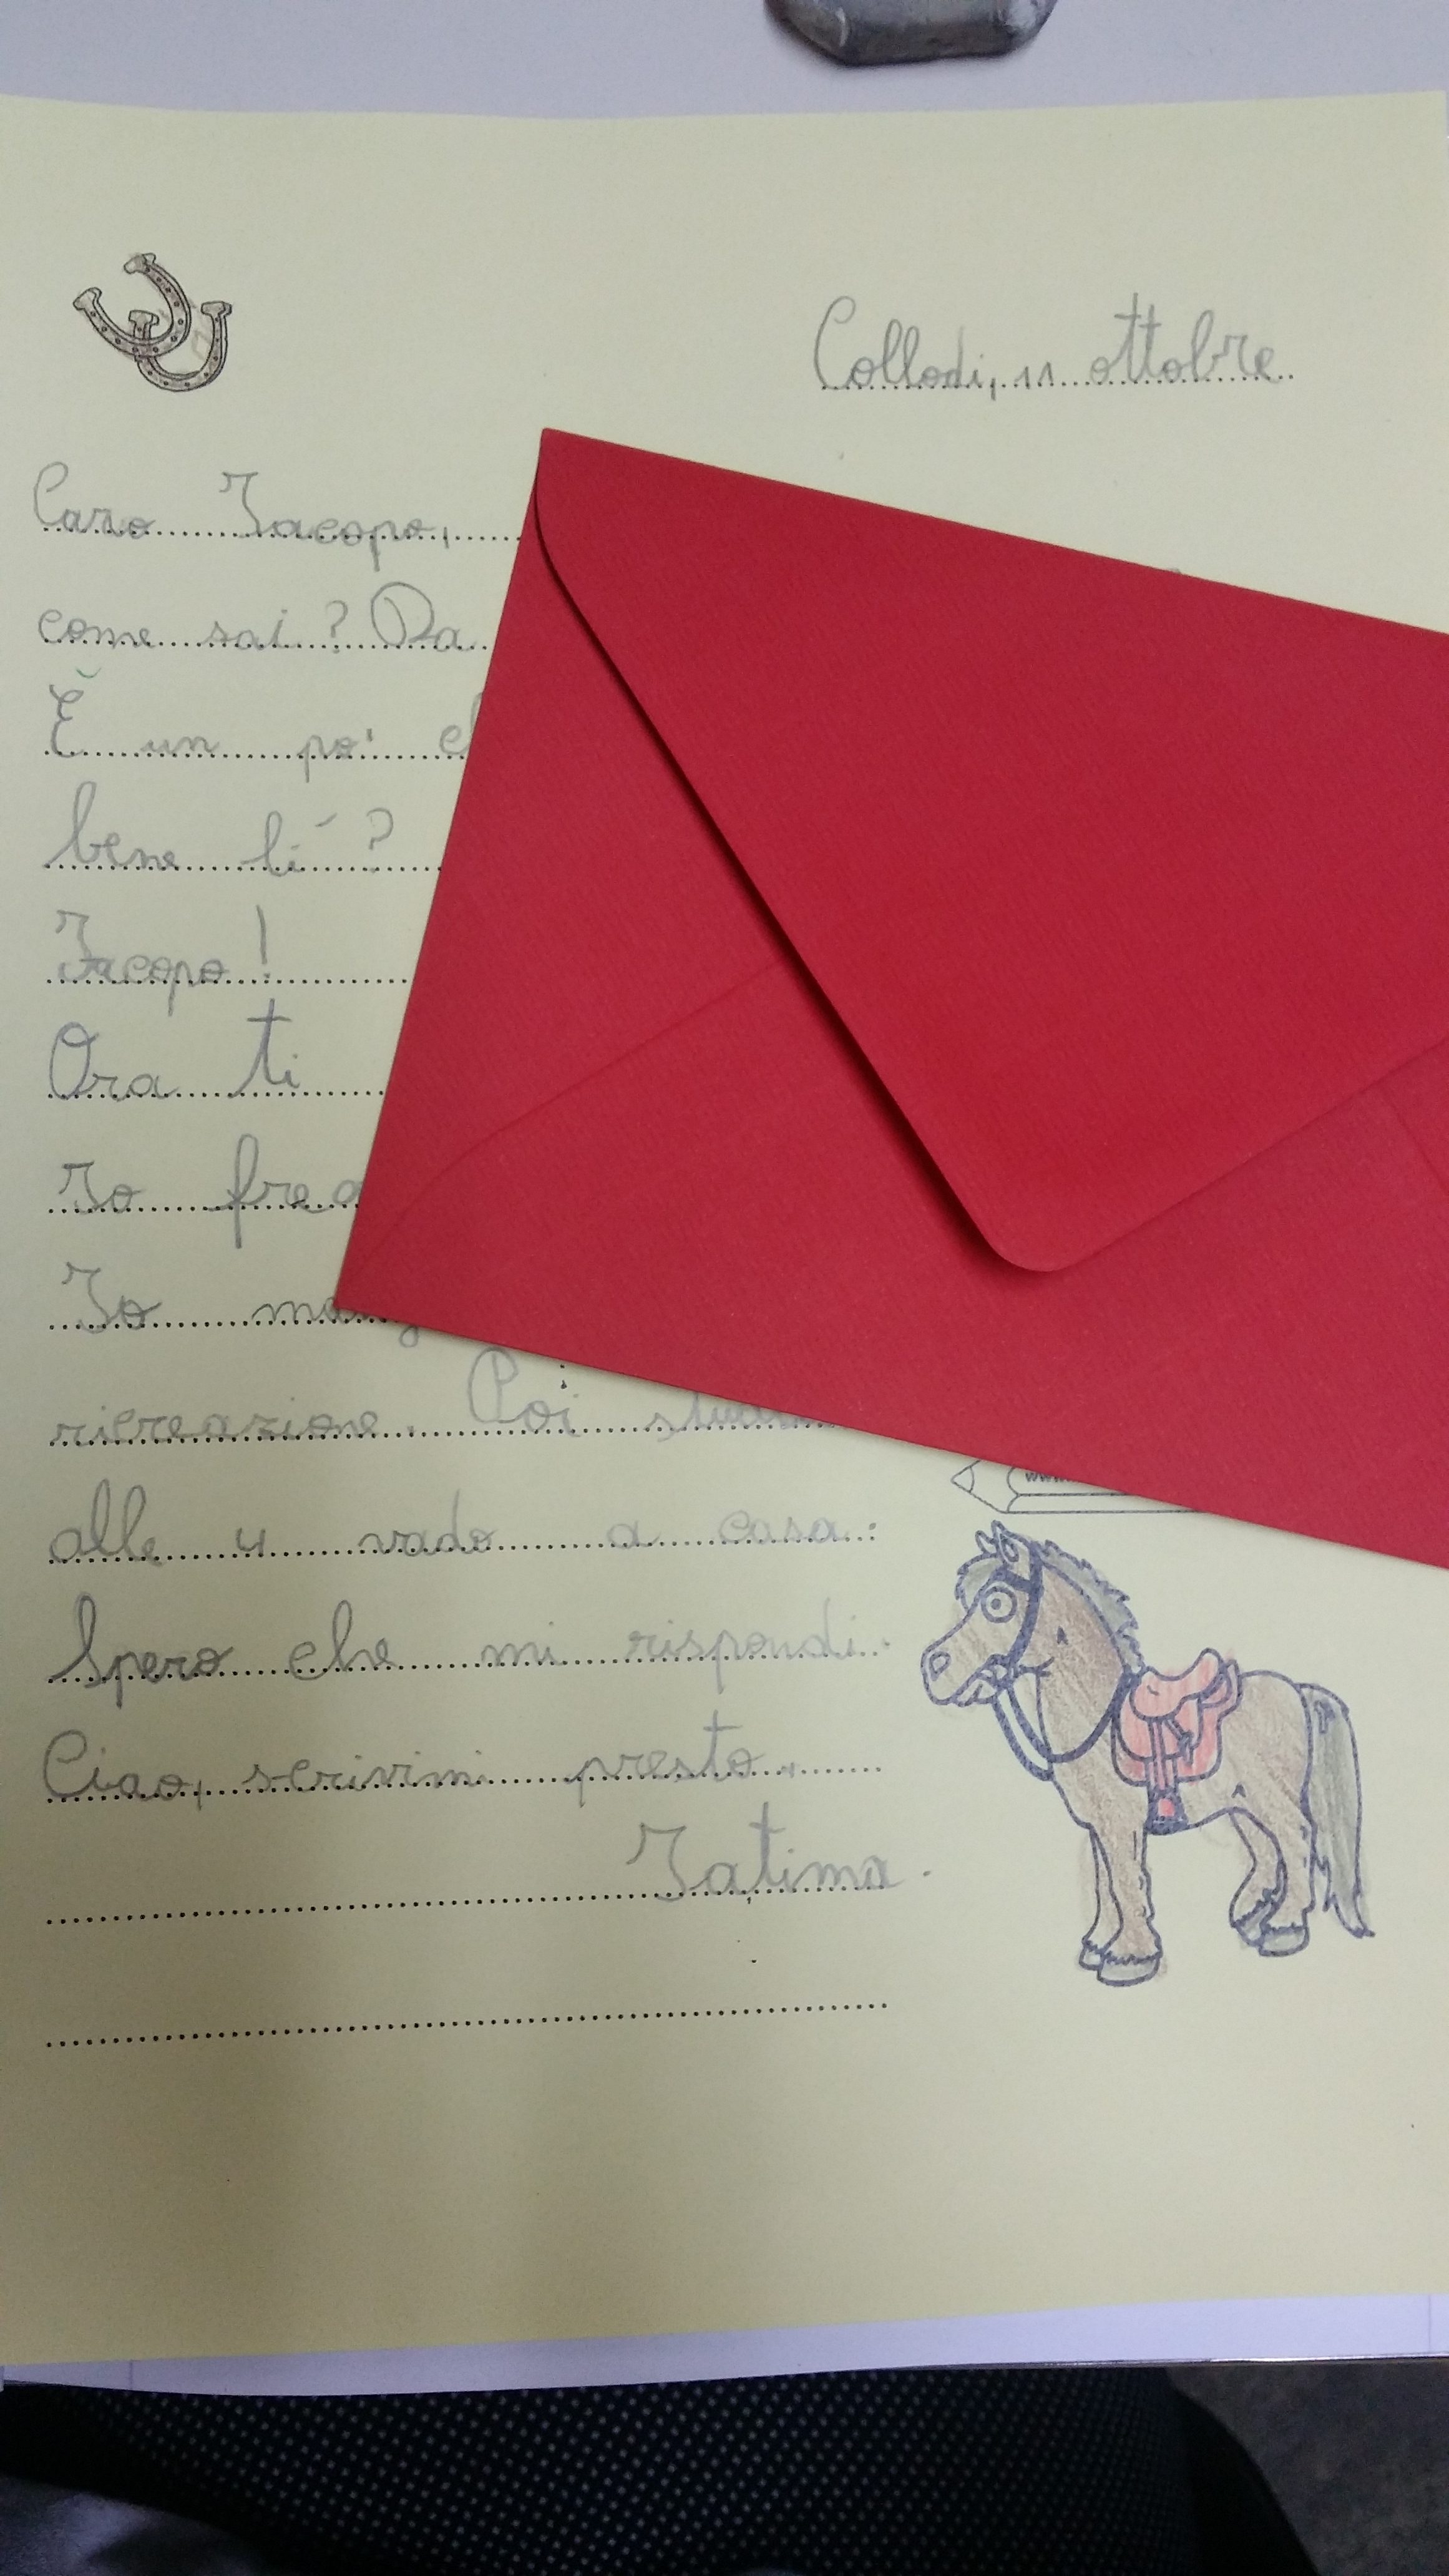 Collodi, 11 ottobre
Caro Jacopo,
come sai? Da
È un po' ch
bene lí?
Jacopo!
Ora ti
Io freq
Io mang
ricreazione. Poi
alle 4 vado a casa.
Spero che mi rispondi.
Ciao, scrivimi presto.
Fatima.